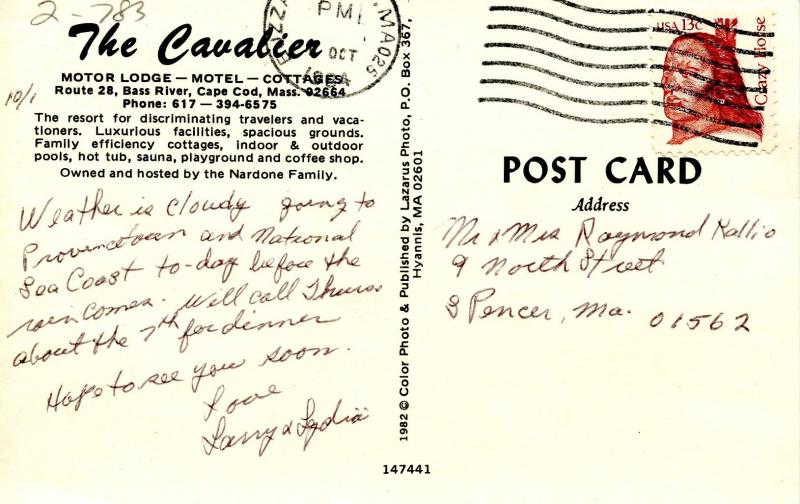 2-783
The Cavalier
MOTOR LODGE — MOTEL — COTTAGES
Route 28, Bass River, Cape Cod, Mass. 02664
Phone: 617 — 394-6575
10/1
The resort for discriminating travelers and vaca-
tioners. Luxurious facilities, spacious grounds.
Family efficiency cottages, indoor & outdoor
pools, hot tub, sauna, playground and coffee shop.
Owned and hosted by the Nardone Family.
Weather is cloudy going to
Provincetown and National
Sea Coast to-day before the
rain comes. Will call Thurs
about the 7th for dinner
Hope to see you soon.
Love
Larry & Lydia
PM
MA 025
OCT
1982 © Color Photo & Published by Lazarus Photo, P.O. Box 367,
Hyannis, MA 02601
147441
USA 13c
Crazy Horse
POST CARD
Address
Mr & Mrs Raymond Kallio
9 North Street
Spencer, Ma. 01562